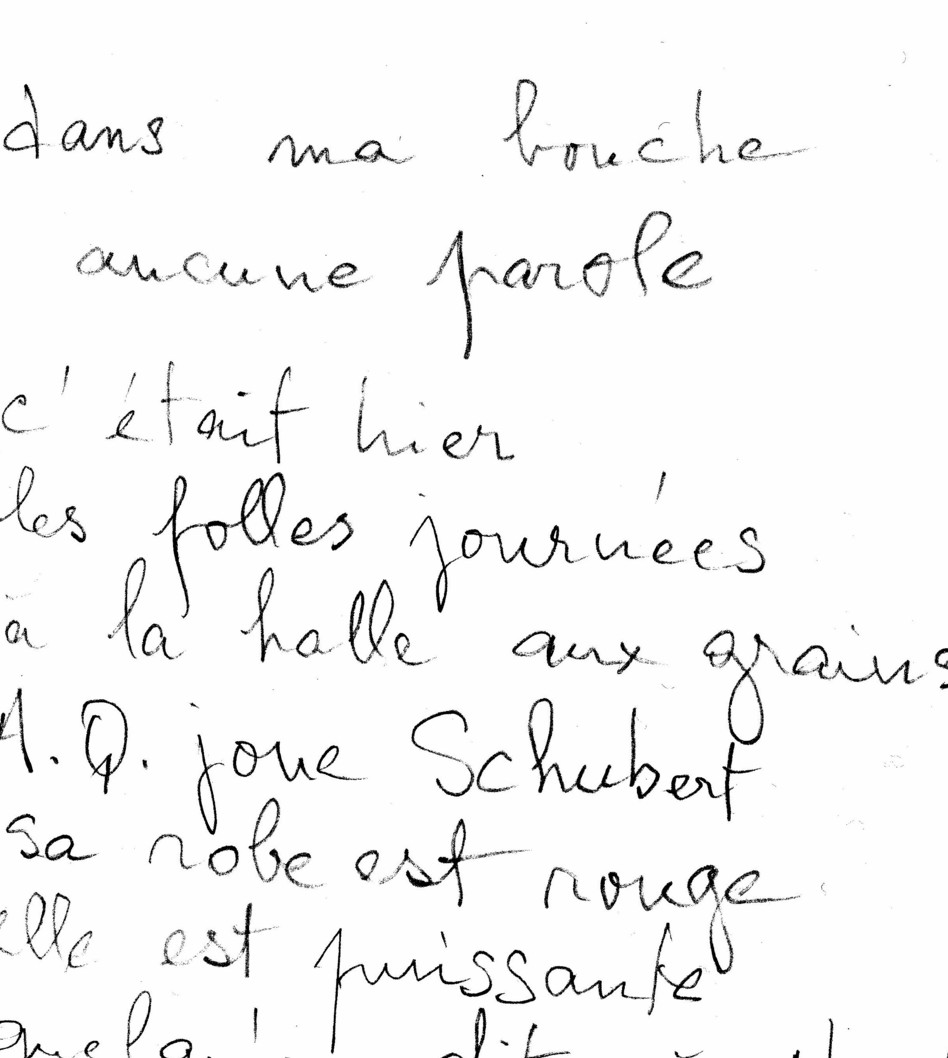 dans ma bouche
aucune parole
c'était hier
les folles journées
à la halle aux grains
A. Q. joue Schubert
sa robe est rouge
elle est puissante
dit